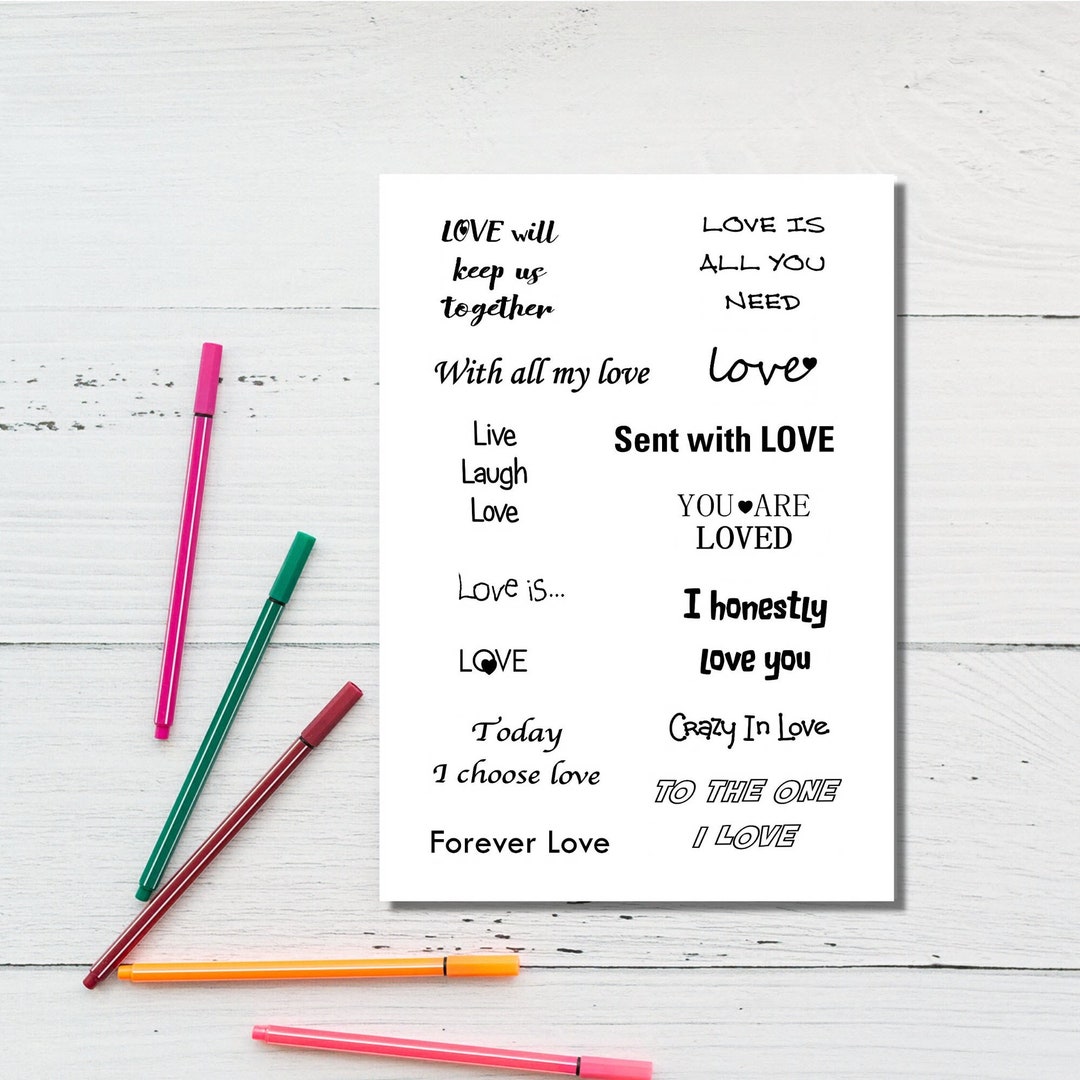 LOVE will
keep us
together
With all my love
Live
Laugh
Love
Love is...
LOVE
Today
I choose love
Forever Love
LOVE IS
ALL YOU
NEED
Love
Sent with LOVE
YOU♥ARE
LOVED
I honestly
love you
Crazy In Love
TO THE ONE
I LOVE